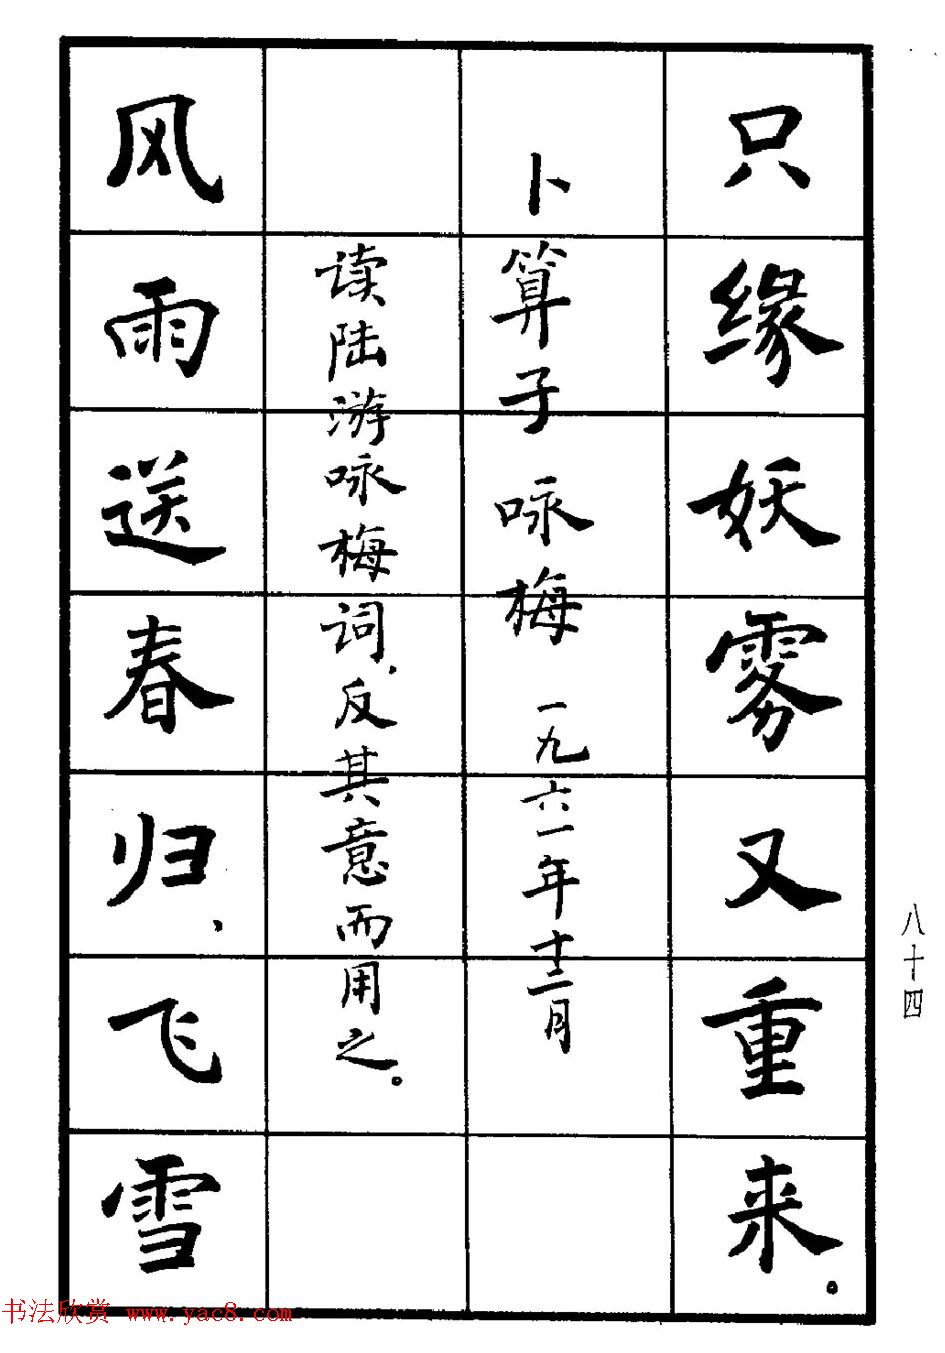 只缘妖雾又重来。
卜算子 咏梅 一九六一年十二月
读陆游咏梅词，反其意而用之。
风雨送春归，飞雪
八十四
书法欣赏 www.yac8.com